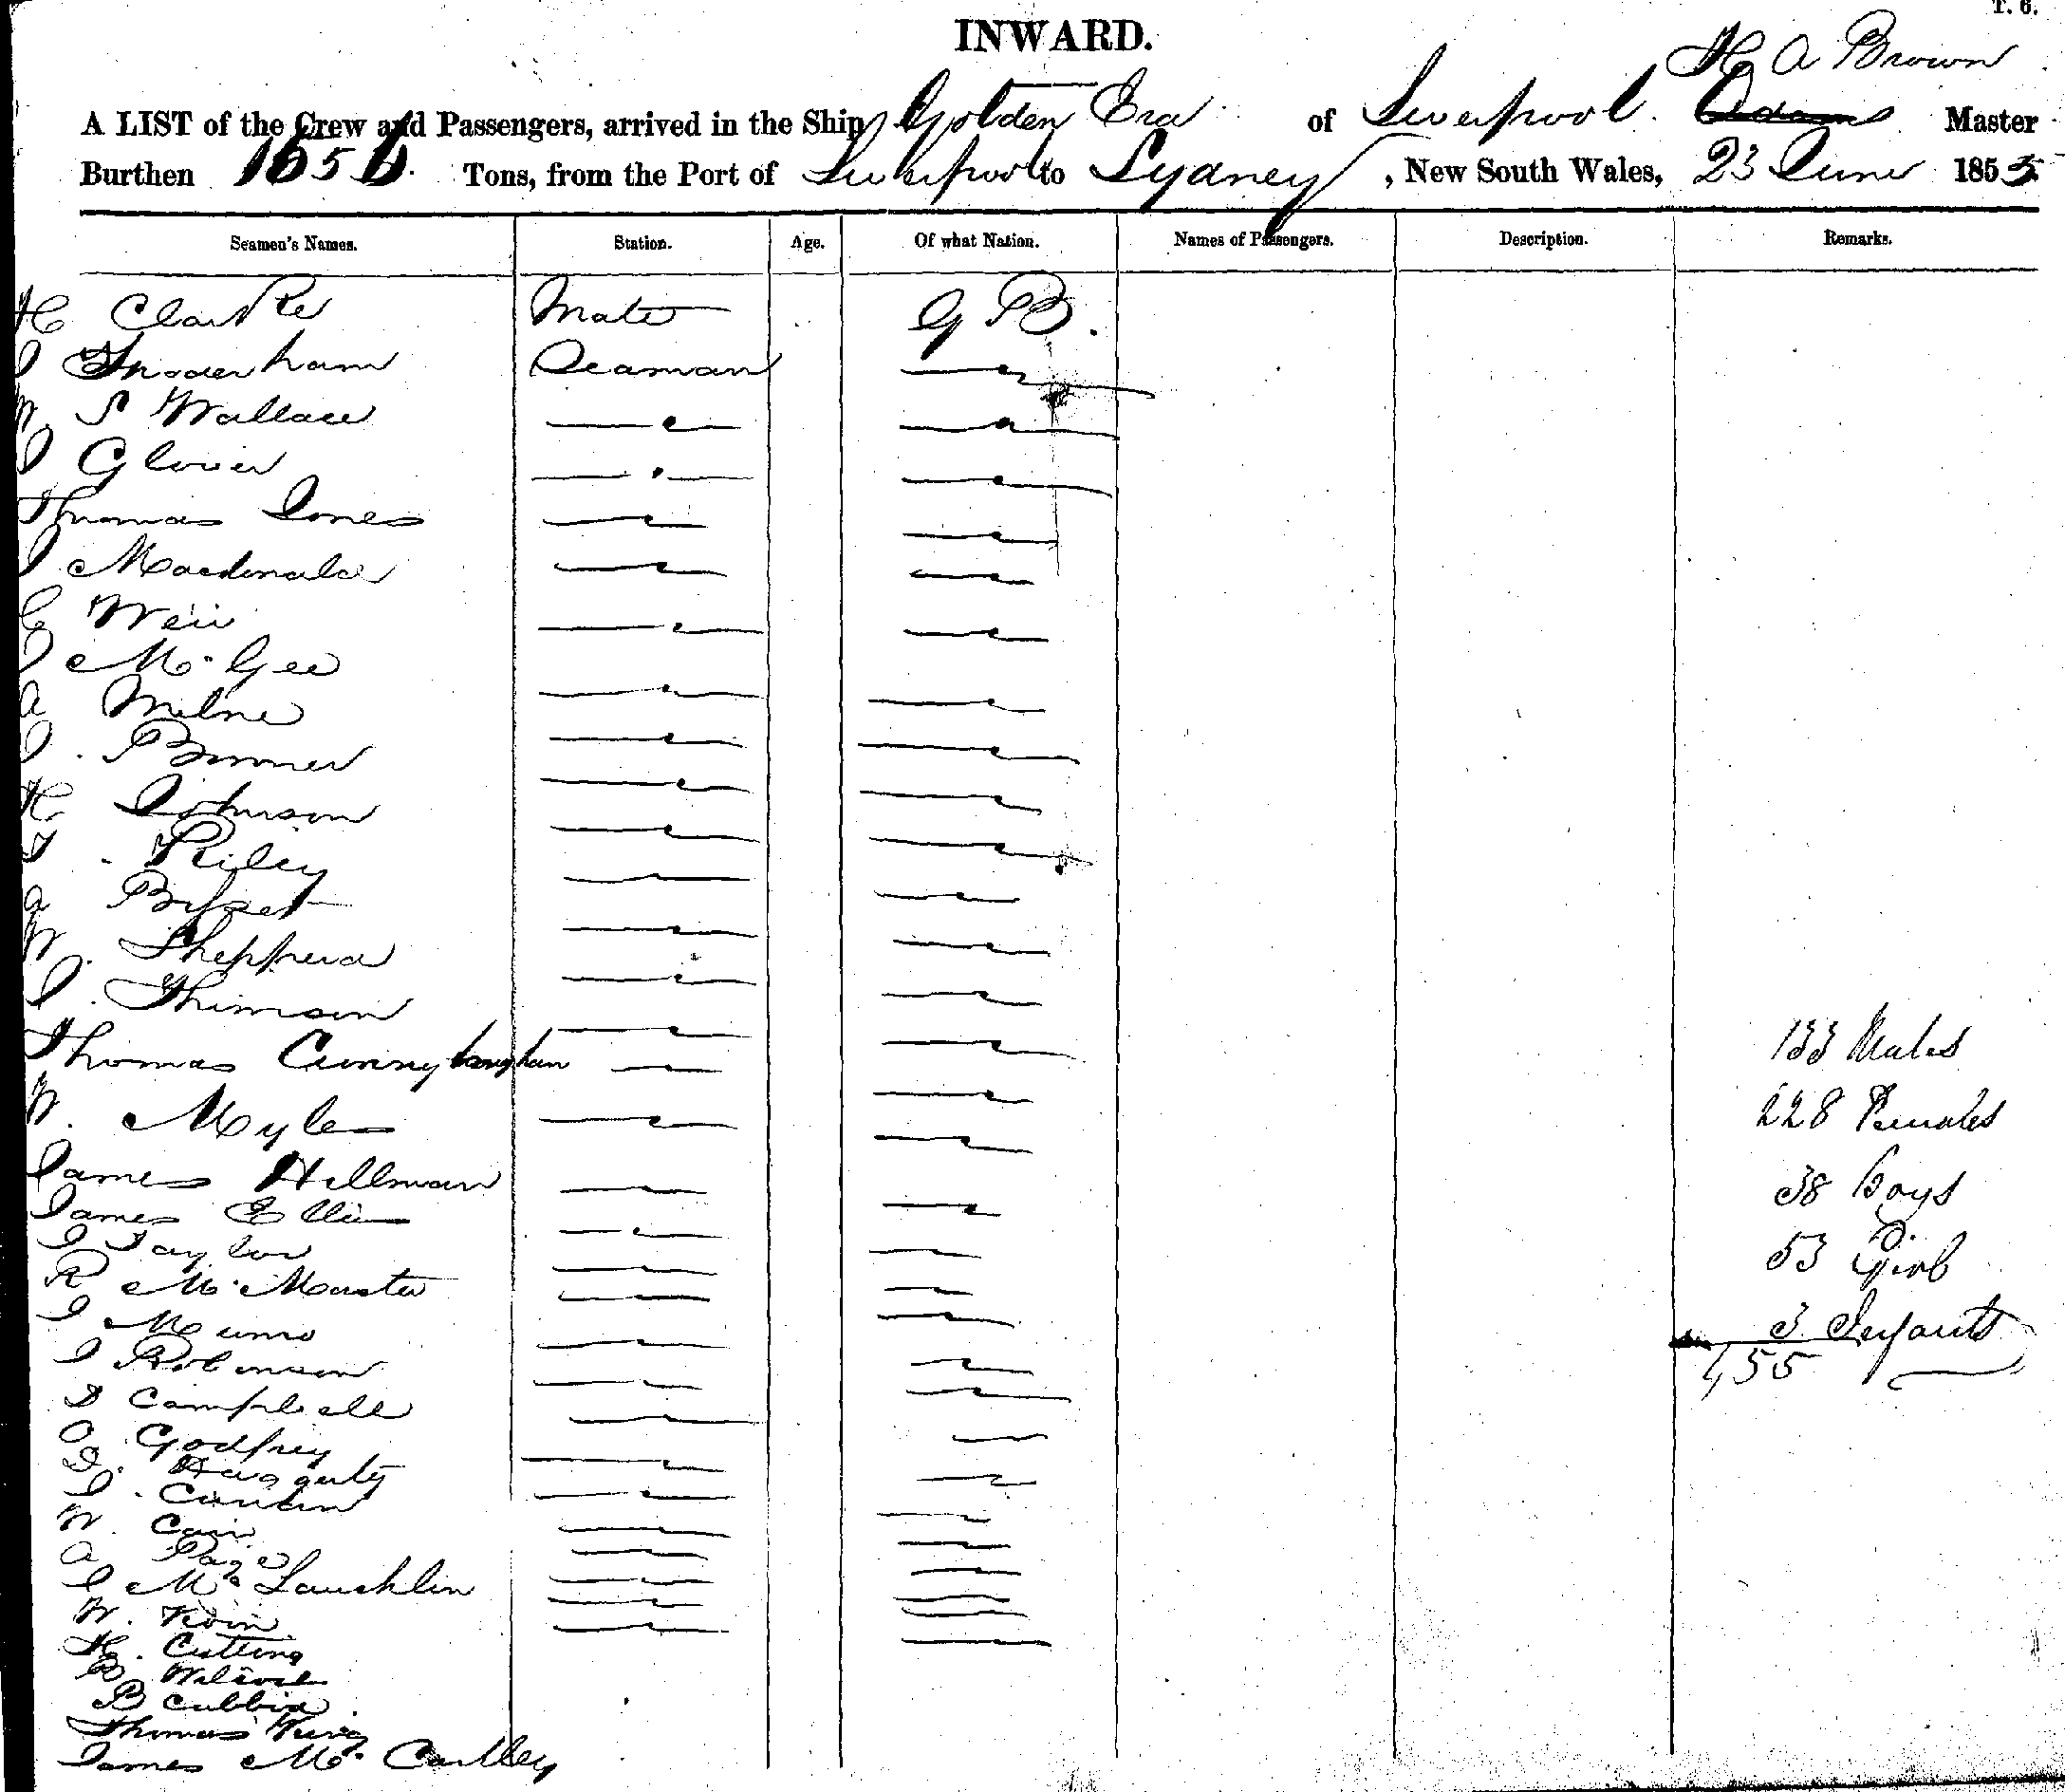 T. 6.
INWARD.
H A Brown
A LIST of the Crew and Passengers, arrived in the Ship Golden Era of Liverpool Adams Master
Burthen 1656 Tons, from the Port of Liverpool to Sydney, New South Wales, 23 June 1855
Seamen's Names. Station. Age. Of what Nation. Names of Passengers. Description. Remarks.
H Clarke Mate G B.
J Snoderham Seaman
W S Wallace
J Glover
Thomas Jones
J Macdonald
C Weir
J McGee
A Milne
J.
H Johnson
T. Riley
A Bysset
W. Shepperd
J. Thimson
Thomas Cunnyhangham
133 Males
W. Myles
228 Females
James Hillman
38 Boys
James Ellis
J Taylor
53 Girls
R McMaster
J Munro
3 Infants
J Robinson
455
D Campbell
A Godfrey
D. Haggerty
J.
W. Cain
A Page
J McLauchlin
W.
H. Cutting
R Wilcock
B Cubbin
Thomas King
James McCartley